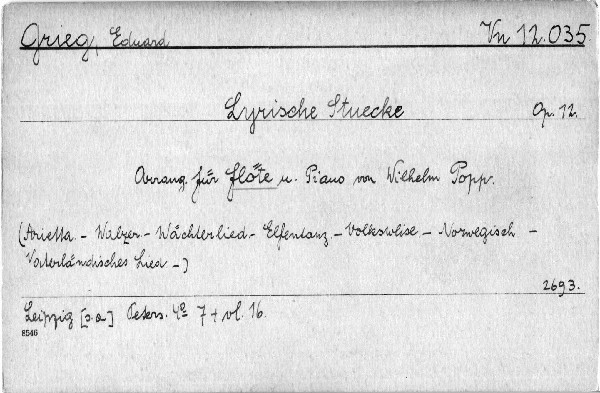 Grieg, Eduard Vn 12.035
Lyrische Stuecke Op. 12.
Arrang. für Flöte u. Piano von Wilhelm Popp.
(Arietta - Walzer - Wächterlied - Elfentanz - Volksweise - Norwegisch -
Vaterländisches Lied -)
2693.
Leipzig [s.a.] Peters. 4° 7 + vl. 16.
8546